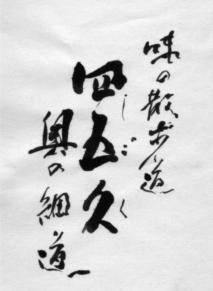 味の散歩道
四五久
しごく
奥の細道